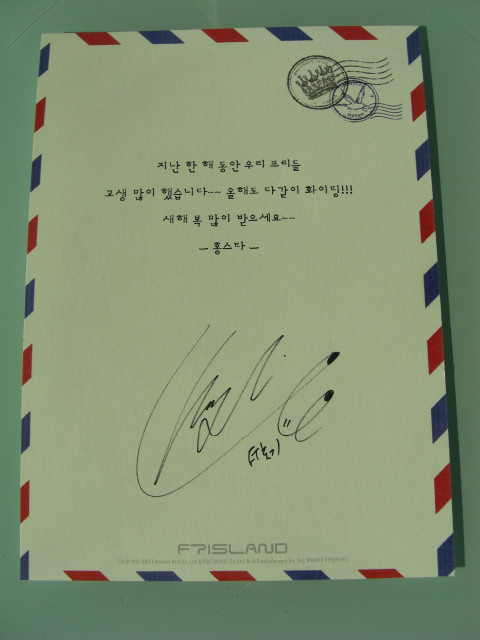 지난 한 해 동안 우리 프리들
고생 많이 했습니다~~ 올해도 다같이 화이팅!!!
새해 복 많이 받으세요~~
— 홍스타 —
FTISLAND